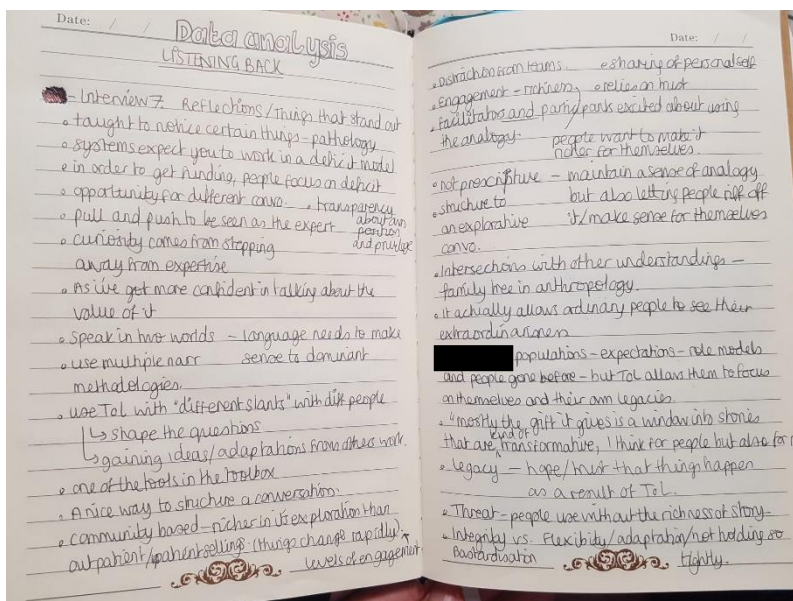 Date: / /
Data analysis
LISTENING BACK
- Interview 7 Reflections/Things that stand out
• taught to notice certain things - pathology
• systems expect you to work in a deficit model
• in order to get funding, people focus on deficit
• opportunity for different convo. • transparency about own position and privilege
• pull and push to be seen as the expert
• curiosity comes from stepping
away from expertise
• As ive got more confident in talking about the
value of it
• Speak in two worlds - language needs to make
sense to dominant
• use multiple narr
methodologies.
• use ToL with "different slants" with diff people
↳ shape the questions
↳ gaining ideas/adaptations from others work.
• one of the tools in the toolbox
• A nice way to structure a conversation.
• community based - richer in its exploration than
outpatient/inpatient settings. (things change rapidly).
levels of engagement
Date: / /
• Distraction from teams. • sharing of personal self
• Engagement - richness, • relies on trust
• Facilitators and participants excited about using
the analogy. people want to make it
richer for themselves.
• not prescriptive - maintain a sense of analogy
• structure to but also letting people riff off
an explorative it/make sense for themselves
convo.
• Intersections with other understandings -
family tree in anthropology.
• it actually allows ordinary people to see their
extraordinariness
populations - expectations - role models
and people gone before - but ToL allows them to focus
on themselves and their own legacies.
• "mostly the gift it gives is a window into stories
that are kind of transformative, I think for people but also for
• Legacy - hope/trust that things happen
as a result of ToL.
• Threat - people use without the richness of story -
• Integrity vs. Flexibility/adaptation/not holding so
Bastardisation tightly.